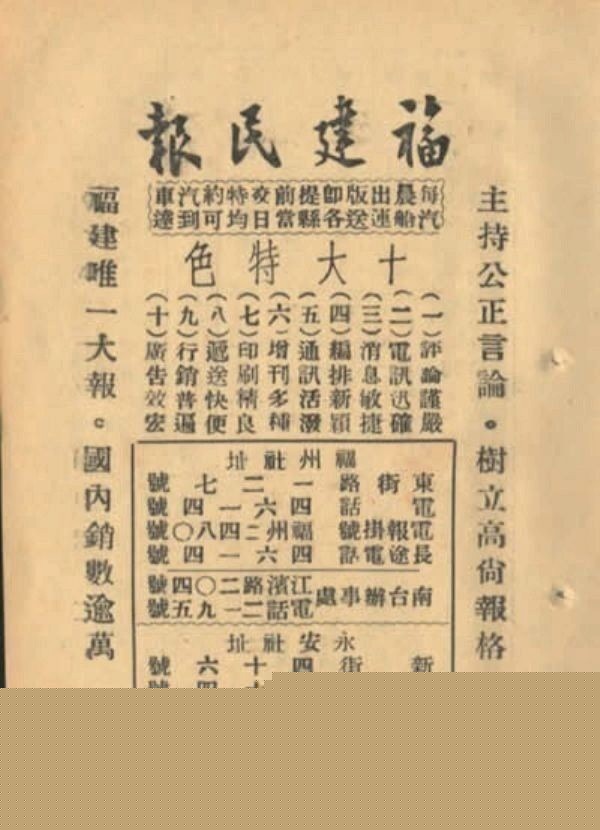 福建民報
每晨出版即提前交特約汽車
汽船運送各縣當日均可到達
主持公正言論。樹立高尚報格
十大特色
(一)評論謹嚴
(二)電訊迅確
(三)消息敏捷
(四)編排新穎
(五)通訊活潑
(六)增刊多種
(七)印刷精良
(八)遞送快便
(九)行銷普遍
(十)廣告效宏
福建唯一大報。國內銷數逾萬
福州社址
東街路一二七號
電話四六一四號
電報掛號福州二四八〇號
長途電話四六一四號
南台辦事處
江濱路二〇四號
電話二一九五號
永安社址
新街四十六號